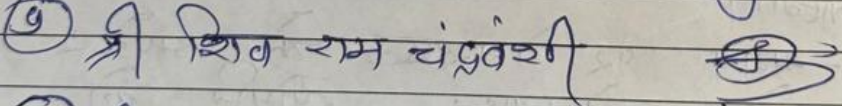 ९ श्री शिव राम चंद्रवंशी